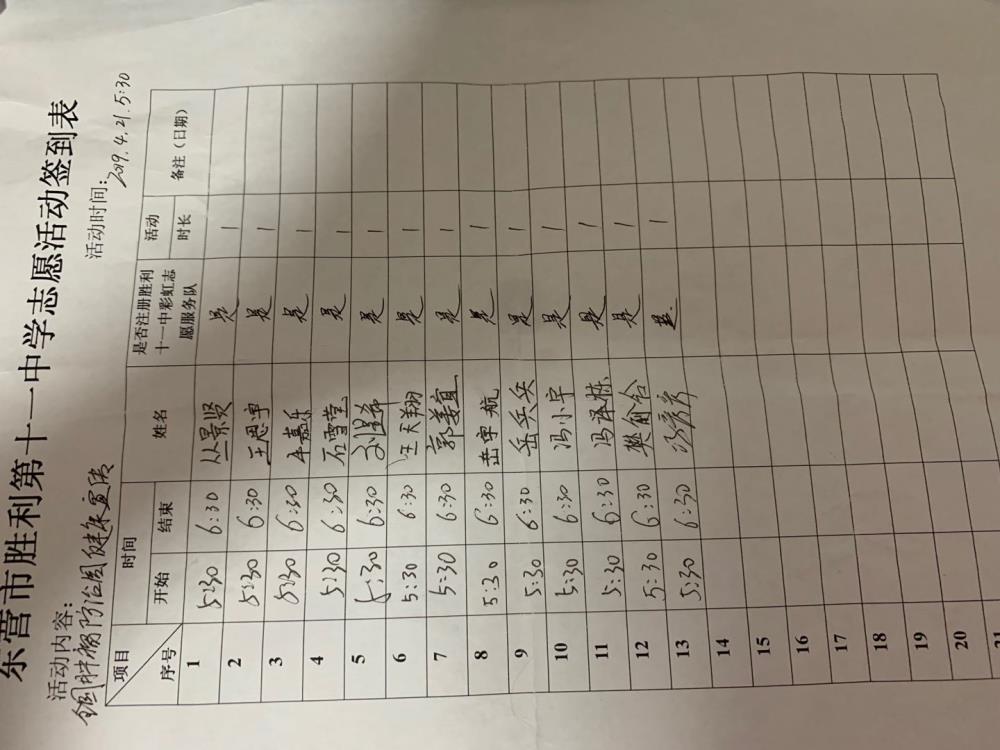 东营市胜利第十一中学志愿活动签到表
活动内容: 活动时间:
全国肿瘤防治周健康宣传 2019.4.21.5:30
项目 时间 姓名 是否注册胜利十一中彩虹志愿服务队 活动时长 备注（日期）
序号 开始 结束
1 5:30 6:30 丛景贤 是 1
2 5:30 6:30 王思宇 是 1
3 5:30 6:30 车嘉乐 是 1
4 5:30 6:30 石雪莹 是 1
5 5:30 6:30 是 1
6 5:30 6:30 天翔 是 1
7 5:30 6:30 郭姜宜 是 1
8 5:30 6:30 岳宇航 是 1
9 5:30 6:30 岳兵兵 是 1
10 5:30 6:30 冯小宇 是 1
11 5:30 6:30 冯泽栋 是 1
12 5:30 6:30 樊俞含 是 1
13 5:30 6:30 是 1
14
15
16
17
18
19
20
21